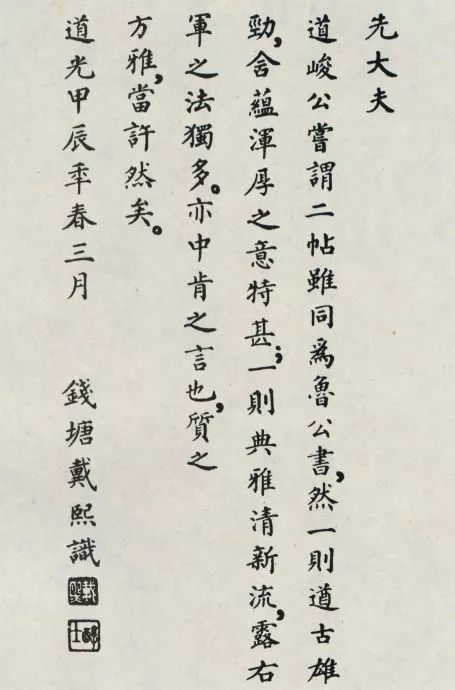 先大夫
道峻公嘗謂二帖雖同為魯公書，然一則遒古雄
勁，含蘊渾厚之意特甚；一則典雅清新流，露右
軍之法獨多。亦中肯之言也，質之
方雅，當許然矣。
道光甲辰季春三月 錢塘戴熙識
戴熙
醇士